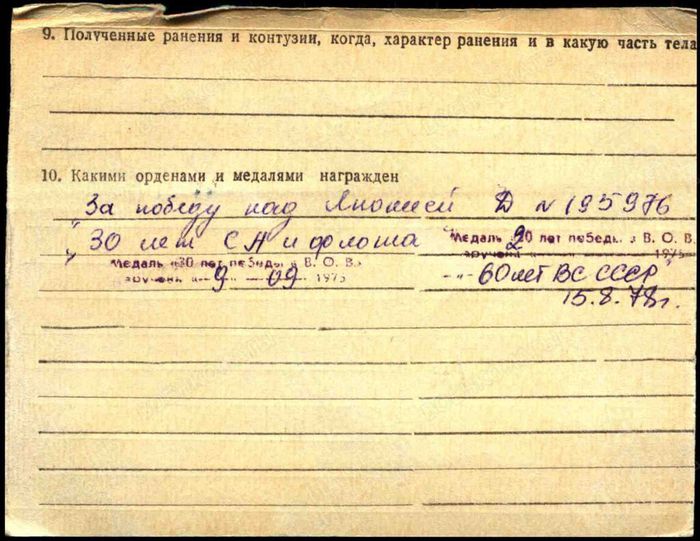 9. Полученные ранения и контузии, когда, характер ранения и в какую часть тела
10. Какими орденами и медалями награжден
За победу над Японией Д № 195976
"30 лет СА и флота Медаль «20 лет победы в В. О. В.
вручена 1975
Медаль «30 лет победы в В. О. В.
вручена «9» 09 1975
-"- 60 лет ВС СССР"
15.8.78г.